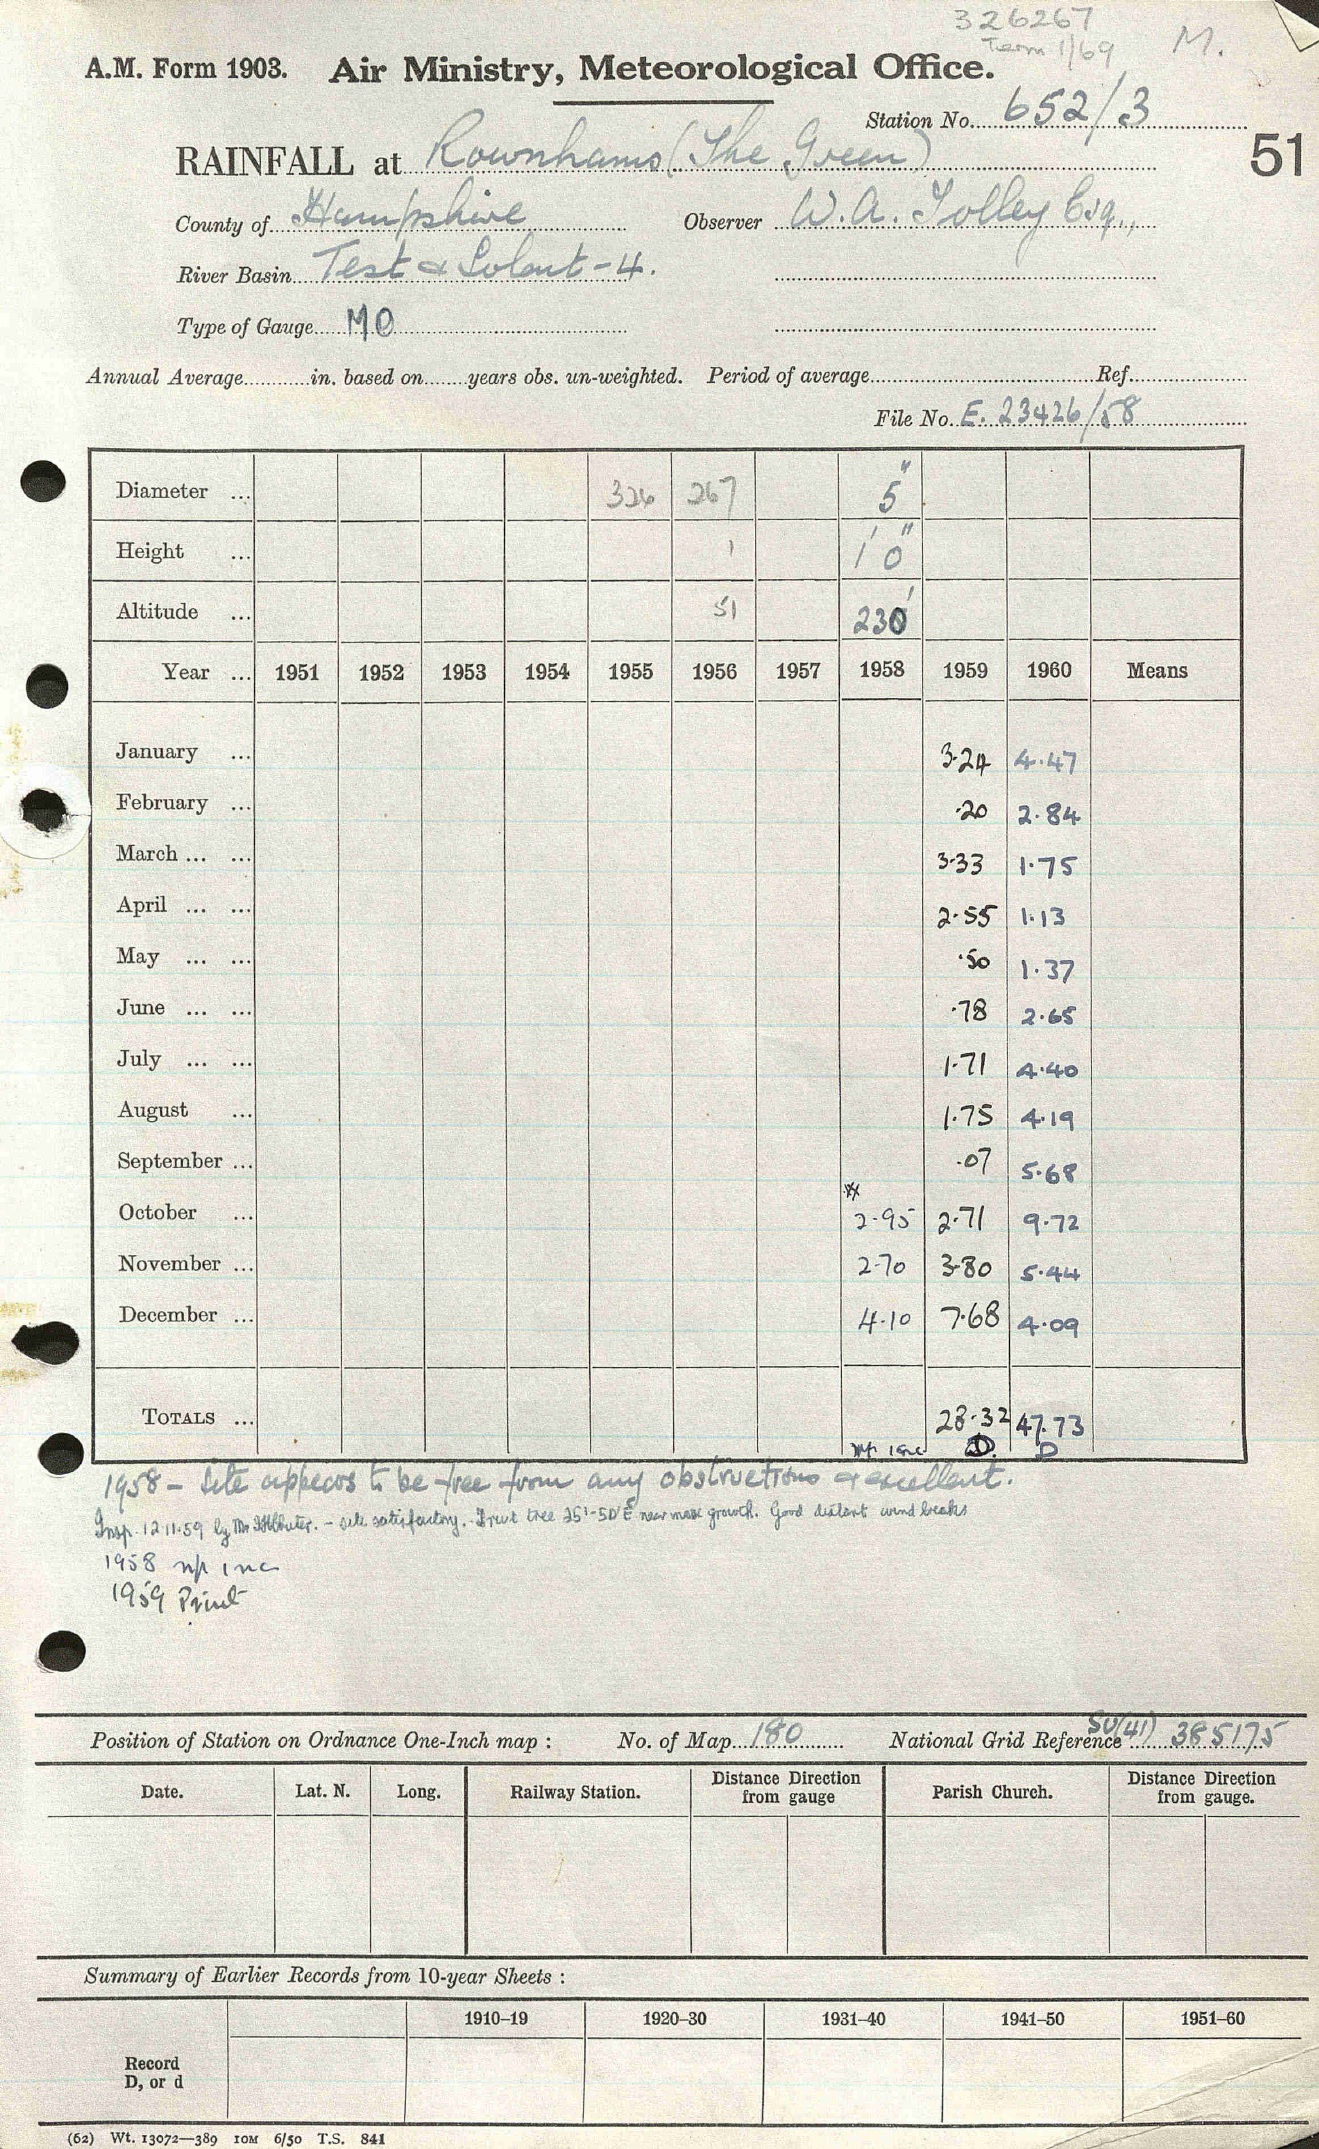 326267
Term 1/69
M.
A.M. Form 1903. Air Ministry, Meteorological Office.
Station No. 652/3
51
RAINFALL at Rownhams (The Green)
County of Hampshire Observer W.A. Tolley Esq.,
River Basin Test & Solent - 4.
Type of Gauge MO
Annual Average in. based on years obs. un-weighted. Period of average Ref.
File No. E. 23426/58
Diameter ... 326 267 5"
Height ... 1 1' 0"
Altitude ... 51 230'
Year ... 1951 1952 1953 1954 1955 1956 1957 1958 1959 1960 Means
January ... 3.24 4.47
February ... .20 2.84
March ... ... 3.33 1.75
April ... ... 2.55 1.13
May ... ... .50 1.37
June ... ... .78 2.65
July ... ... 1.71 4.40
August ... 1.75 4.19
September ... .07 5.68
October ... 2.95 2.71 9.72
November ... 2.70 3.80 5.44
December ... 4.10 7.68 4.09
TOTALS ... 28.32 47.73
np inc D. D
1958 - Site appears to be free from any obstructions & excellent.
Insp. 12.11.59 by Mr - site satisfactory. Fruit tree 25'-50' E near max growth. Good distant wind breaks
1958 np inc
1959 Print
Position of Station on Ordnance One-Inch map : No. of Map 180 National Grid Reference SU(41) 385175
Date. Lat. N. Long. Railway Station. Distance Direction from gauge Parish Church. Distance Direction from gauge.
Summary of Earlier Records from 10-year Sheets :
1910–19 1920–30 1931–40 1941–50 1951–60
Record
D, or d
(62) Wt. 13072—389 10M 6/50 T.S. 841